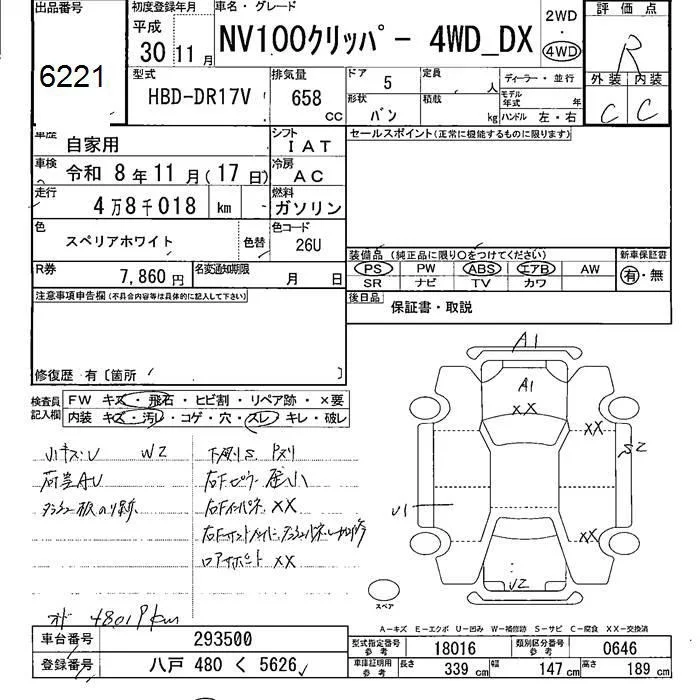 出品番号
6221
初度登録年月
平成
30年11月
車名・グレード
NV100クリッパー 4WD_DX
2WD
・
4WD
評価点
R
外装 内装
C C
型式
HBD-DR17V
排気量
658
cc
ドア 5
定員 人
ディーラー・並行
形状 バン
積載 kg
モデル年式 年
ハンドル 左・右
車歴 自家用
シフト IAT
セールスポイント(正常に機能するものに限ります)
車検 令和 8年11月(17日)
冷房 AC
走行 4万8千018 km
燃料 ガソリン
色 スペリアホワイト
色替
色コード 26U
装備品(純正品に限り○をつけてください)
新車保証書
PS PW ABS エアB AW
有・無
SR ナビ TV カワ
R券 7,860円
名変通知期限 月 日
後日品 保証書・取説
注意事項申告欄(不具合内容等は具体的に記入して下さい)
修復歴 有〔箇所 〕
検査員記入欄
FW キズ・飛石・ヒビ割・リペア跡・×要
内装 キズ・汚レ・コゲ・穴・スレ・キレ・破レ
小キズ・U W2
下廻りS
荷台AU
右Fピラー
右Fインパネ XX
XX
A1
A1
XX
XX
U1
XX
U2
スペア
A-キズ E-エクボ U-凹み W-補修跡 S-サビ C-腐食 XX-交換済
車台番号 293500
型式指定番号参考 18016
類別区分番号参考 0646
登録番号 八戸 480 く 5626
車庫証明用参考 長さ 339cm 幅 147cm 高さ 189cm